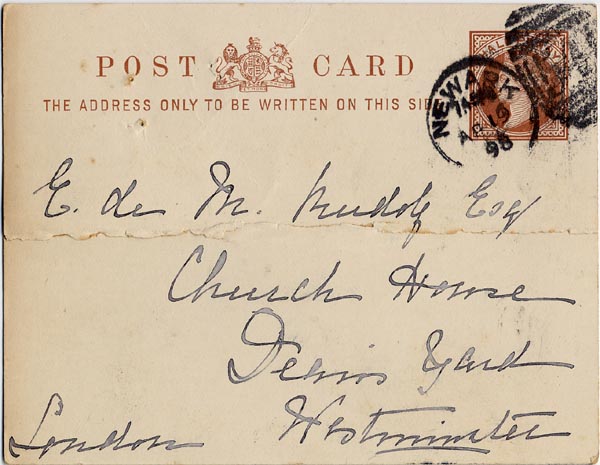 POST CARD
THE ADDRESS ONLY TO BE WRITTEN ON THIS SID
NEWARK
AP 19
95
E. de M. Rudolf Esq
Church House
Deans Yard
Westminster
London